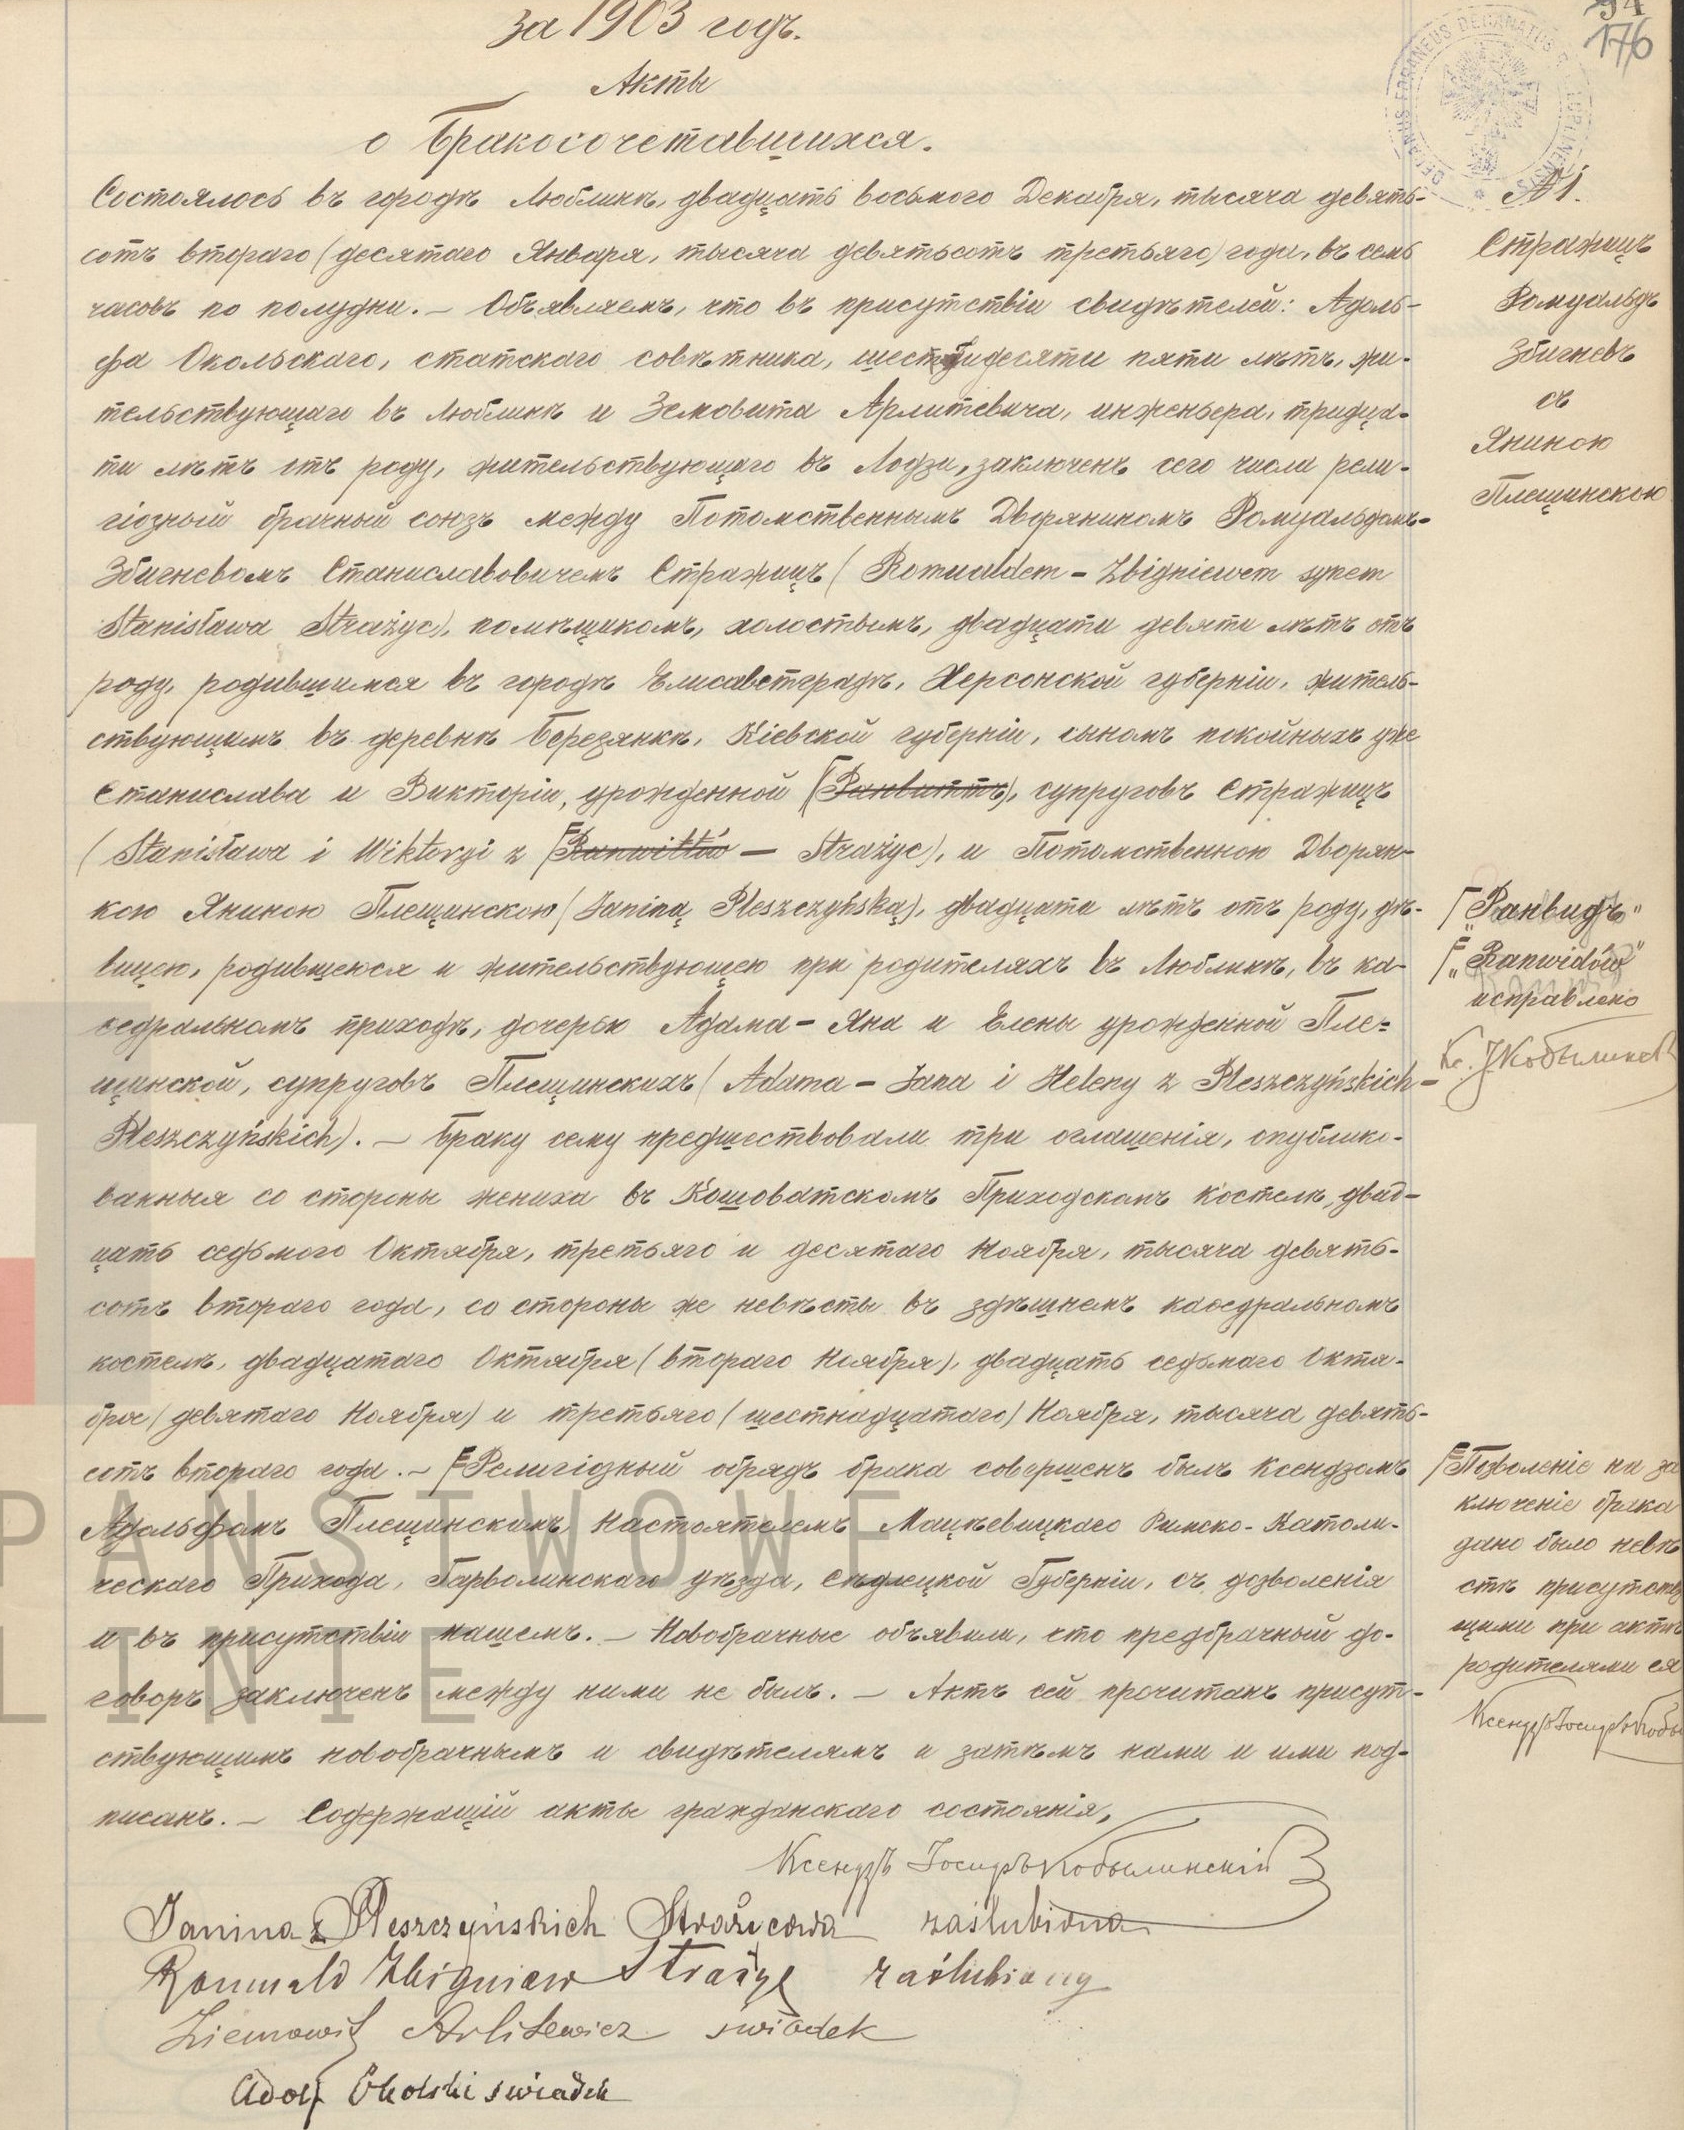 за 1903 годъ.
94
176
DECANUS FORANEUS DECANATUS LUBLINENSIS
Акты
о бракосочетавшихся.
№ 1.
Стражицъ
Ромуальдъ
Збигневъ
съ
Яниною
Плещинскою
Состоялось въ городѣ Люблинѣ, двадцать восьмого Декабря, тысяча девять-
сотъ второго (десятаго Января, тысяча девятьсотъ третьяго) года, въ семь
часовъ по полудни. – Объявляемъ, что въ присутствіи свидѣтелей: Адоль-
фа Окольскаго, статскаго совѣтника, шестидесяти пяти лѣтъ, жи-
тельствующаго въ Люблинѣ и Земовита Арлитевича, инженера, тридца-
ти лѣтъ отъ роду, жительствующаго въ Лодзи, заключенъ сего числа рели-
гіозный брачный союзъ между Потомственнымъ Дворяниномъ Ромуальдомъ-
Збигневомъ Станиславовичемъ Стражицъ (Romualdem – Zbigniewem synem
Stanisława Strażyc), помѣщикомъ, холостымъ, двадцати девяти лѣтъ отъ
роду, родившимся въ городѣ Елисаветградѣ, Херсонской губерніи, житель-
ствующимъ въ деревнѣ Березянкѣ, Кіевской губерніи, сыномъ покойныхъ уже
Станислава и Викторіи, урожденной (Ранвиттъ), супруговъ Стражицъ
(Stanisława i Wiktoryi z Ranwittów – Strażyc), и Потомственною Дворян-
кою Яниною Плещинскою (Janiną Pleszczyńską), двадцати лѣтъ отъ роду, дѣ-
вицею, родившеюся и жительствующею при родителяхъ въ Люблинѣ, въ ка-
ѳедральномъ приходѣ, дочерью Адама – Яна и Елены урожденной Пле-
щинской, супруговъ Плещинскихъ (Adama – Jana i Heleny z Pleszczyńskich –
Pleszczyńskich). – Браку сему предшествовали три оглашенія, опублико-
ванныя со стороны жениха въ Кошоватскомъ Приходскомъ костелѣ, двад-
цать седьмого Октября, третьяго и десятаго Ноября, тысяча девять-
сотъ втораго года, со стороны же невѣсты въ здѣшнемъ каѳедральномъ
костелѣ, двадцатаго Октября (втораго Ноября), двадцать седьмаго Октя-
бря (девятаго Ноября) и третьяго (шестнадцатаго) Ноября, тысяча девять-
сотъ втораго года. – Религіозный обрядъ брака совершенъ былъ Ксендзомъ
Адольфомъ Плещинскимъ, Настоятелемъ Мацѣевицкаго Римско-Католи-
ческаго Прихода, Гарволинскаго уѣзда, Сѣдлецкой Губерніи, съ дозволенія
и въ присутствіи нашемъ. – Новобрачные объявили, что предбрачный до-
говоръ заключенъ между ними не былъ. – Актъ сей прочитанъ присут-
ствующимъ новобрачнымъ и свидѣтелямъ и затѣмъ нами и ими под-
писанъ. – Содержащій акты гражданскаго состоянія,
Ксендзъ Іосифъ Кобылинскій
Janina z Pleszczyńskich Strażycowa zaślubiona
Romuald Zbigniew Strażyc zaślubiony
Ziemowit Arlitewicz świadek
Adolf Okolski świadek
„Ранвидъ"
„Ranwidów"
исправлено
Кс. І Кобылинскі
Позволеніе на за
ключеніе брака
дано было невѣ
стѣ присутству
щими при актѣ
родителями ея
Ксендзъ Іосифъ Кобы
PAŃSTWOWE
LINIE